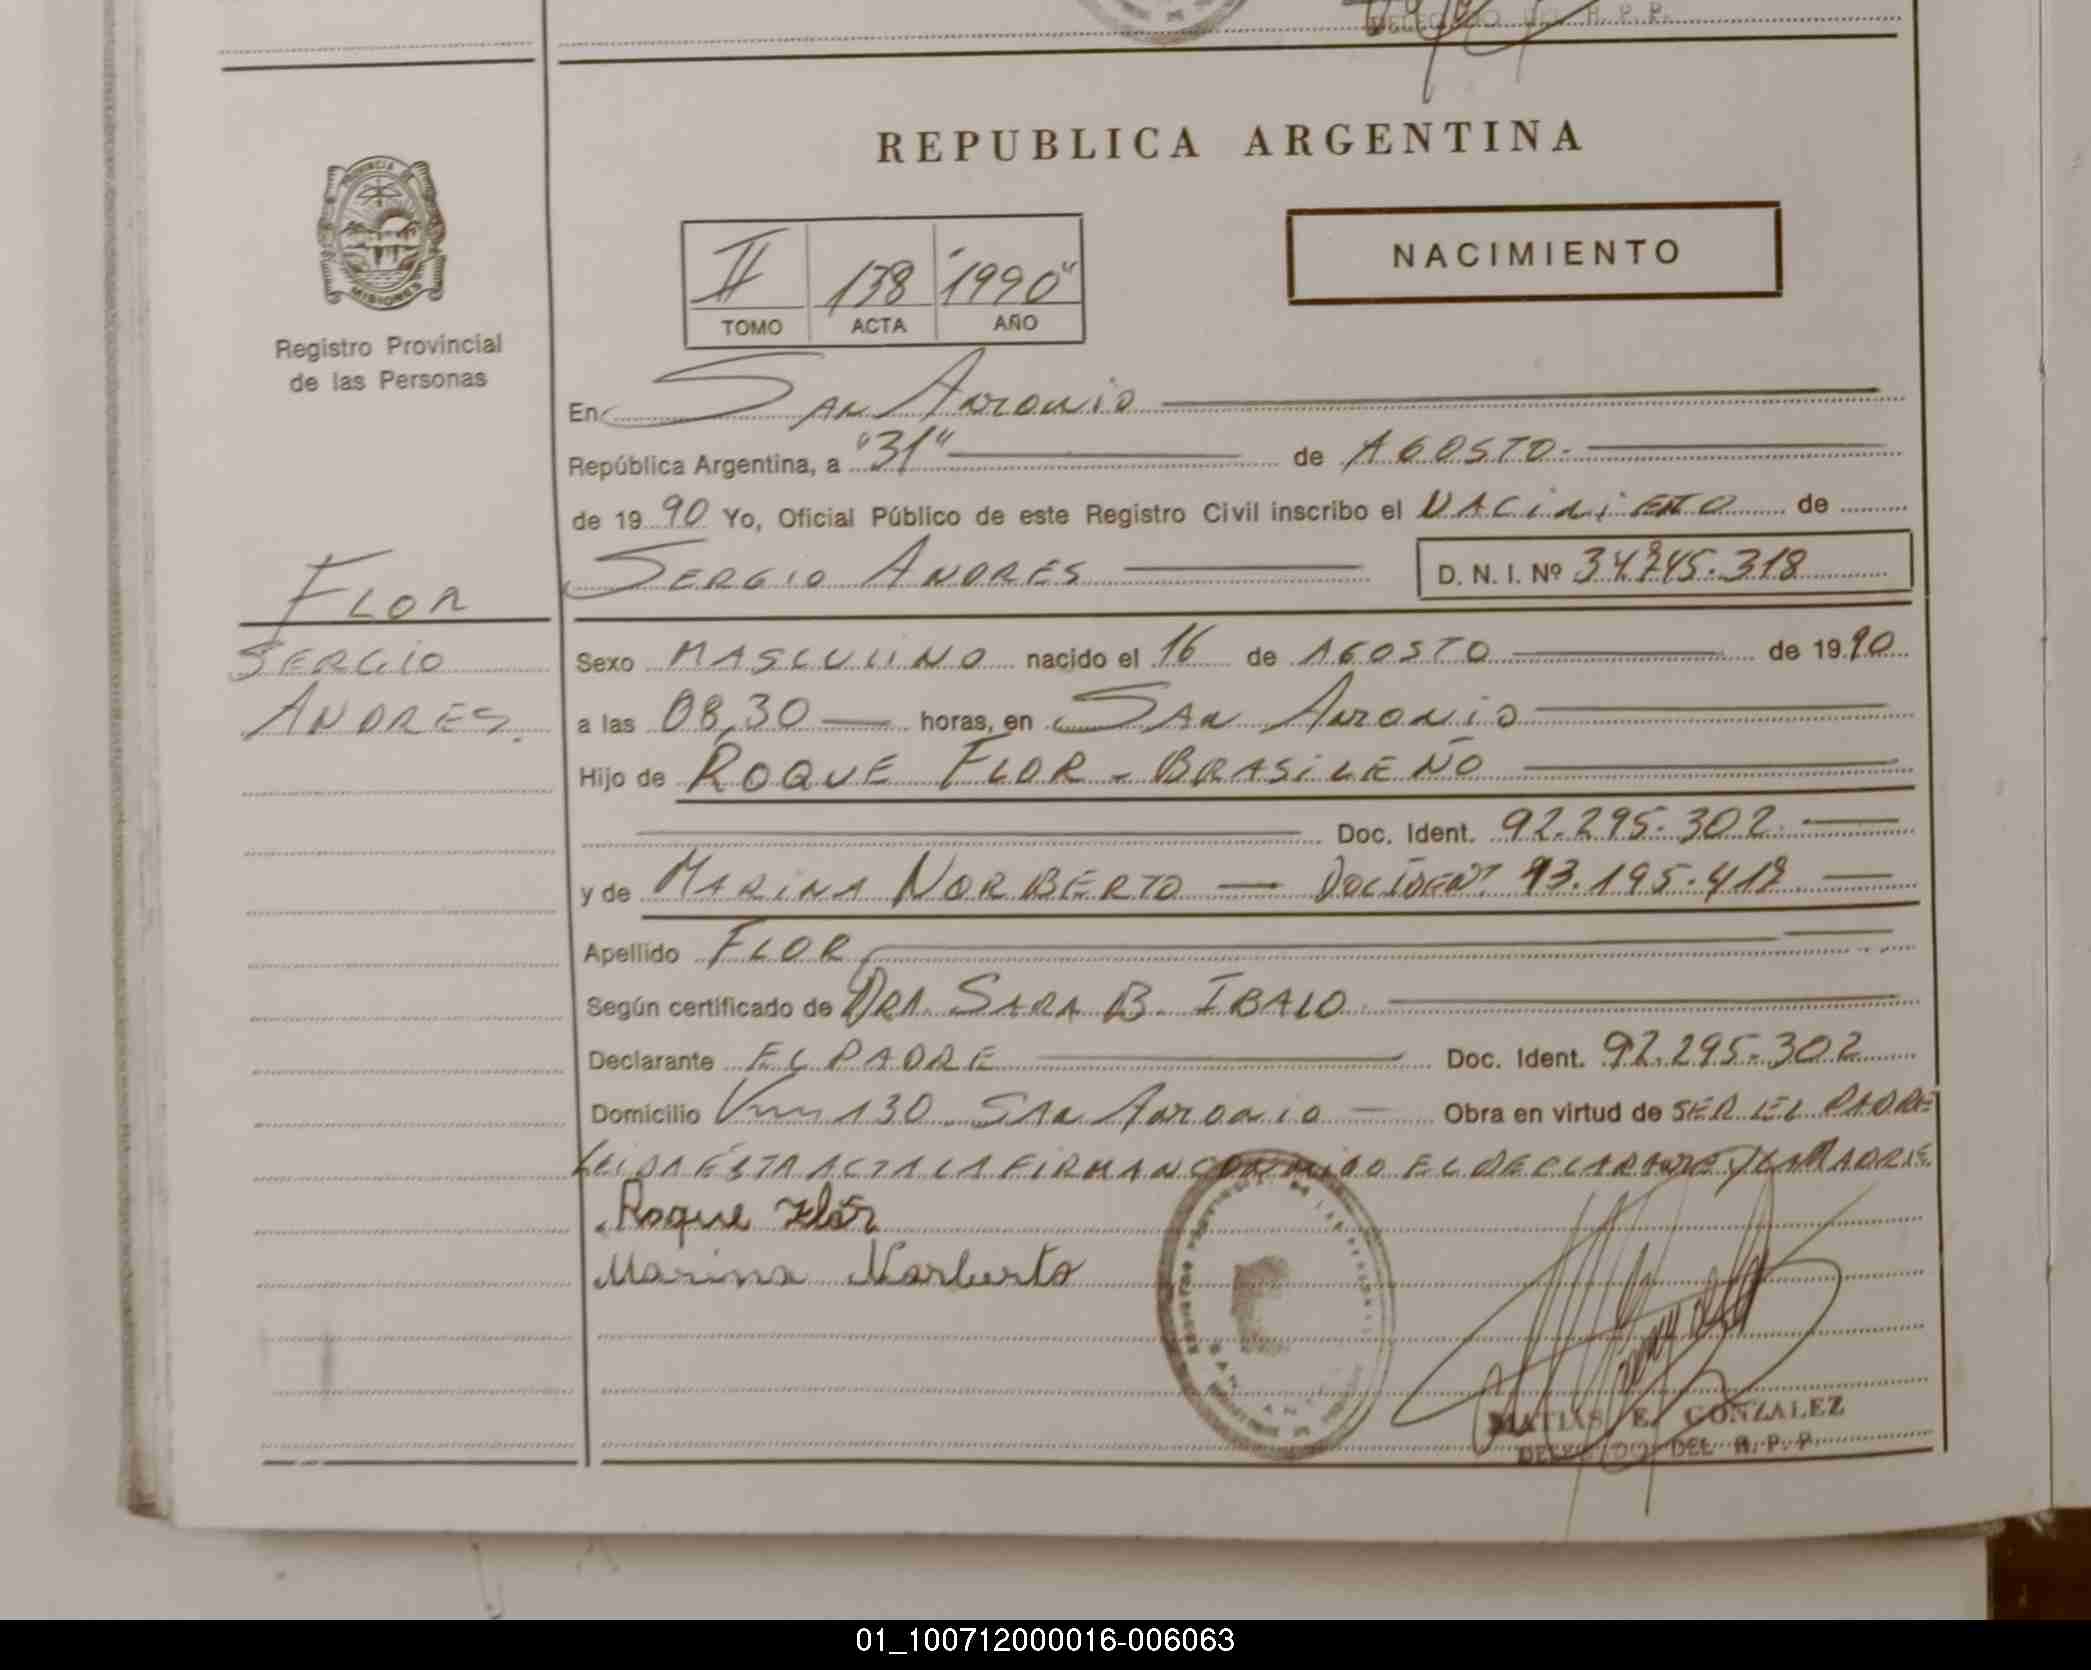 DELEGADO DEL R. P. P.
REPUBLICA ARGENTINA
PROVINCIA DE MISIONES
NACIMIENTO
II 138 "1990"
TOMO ACTA AÑO
Registro Provincial
de las Personas
En San Antonio
República Argentina, a "31" de AGOSTO.
de 1990 Yo, Oficial Público de este Registro Civil inscribo el NACIMIENTO de
SERGIO ANDRES D. N. I. Nº
FLOR
SERGIO
ANDRES.
Sexo MASCULINO nacido el 16 de AGOSTO de 1990
a las 08,30 horas, en San Antonio
Hijo de ROQUE FLOR - BRASILEÑO
Doc. Ident. 92.295.302
y de MARINA NORBERTO — Doc. Ident 93.195.418
Apellido FLOR
Según certificado de DRA. SARA B. IBALO
Declarante EL PADRE Doc. Ident. 92.295.302
Domicilio Km 130 San Antonio Obra en virtud de SER EL PADRE
LEIDA ESTA ACTA LA FIRMAN CONMIGO EL DECLARANTE Y LA MADRE.
Roque Flor
Marina Norberto
MATIAS E. GONZALEZ
DELEGADO DEL R. P. P.
01_100712000016-006063